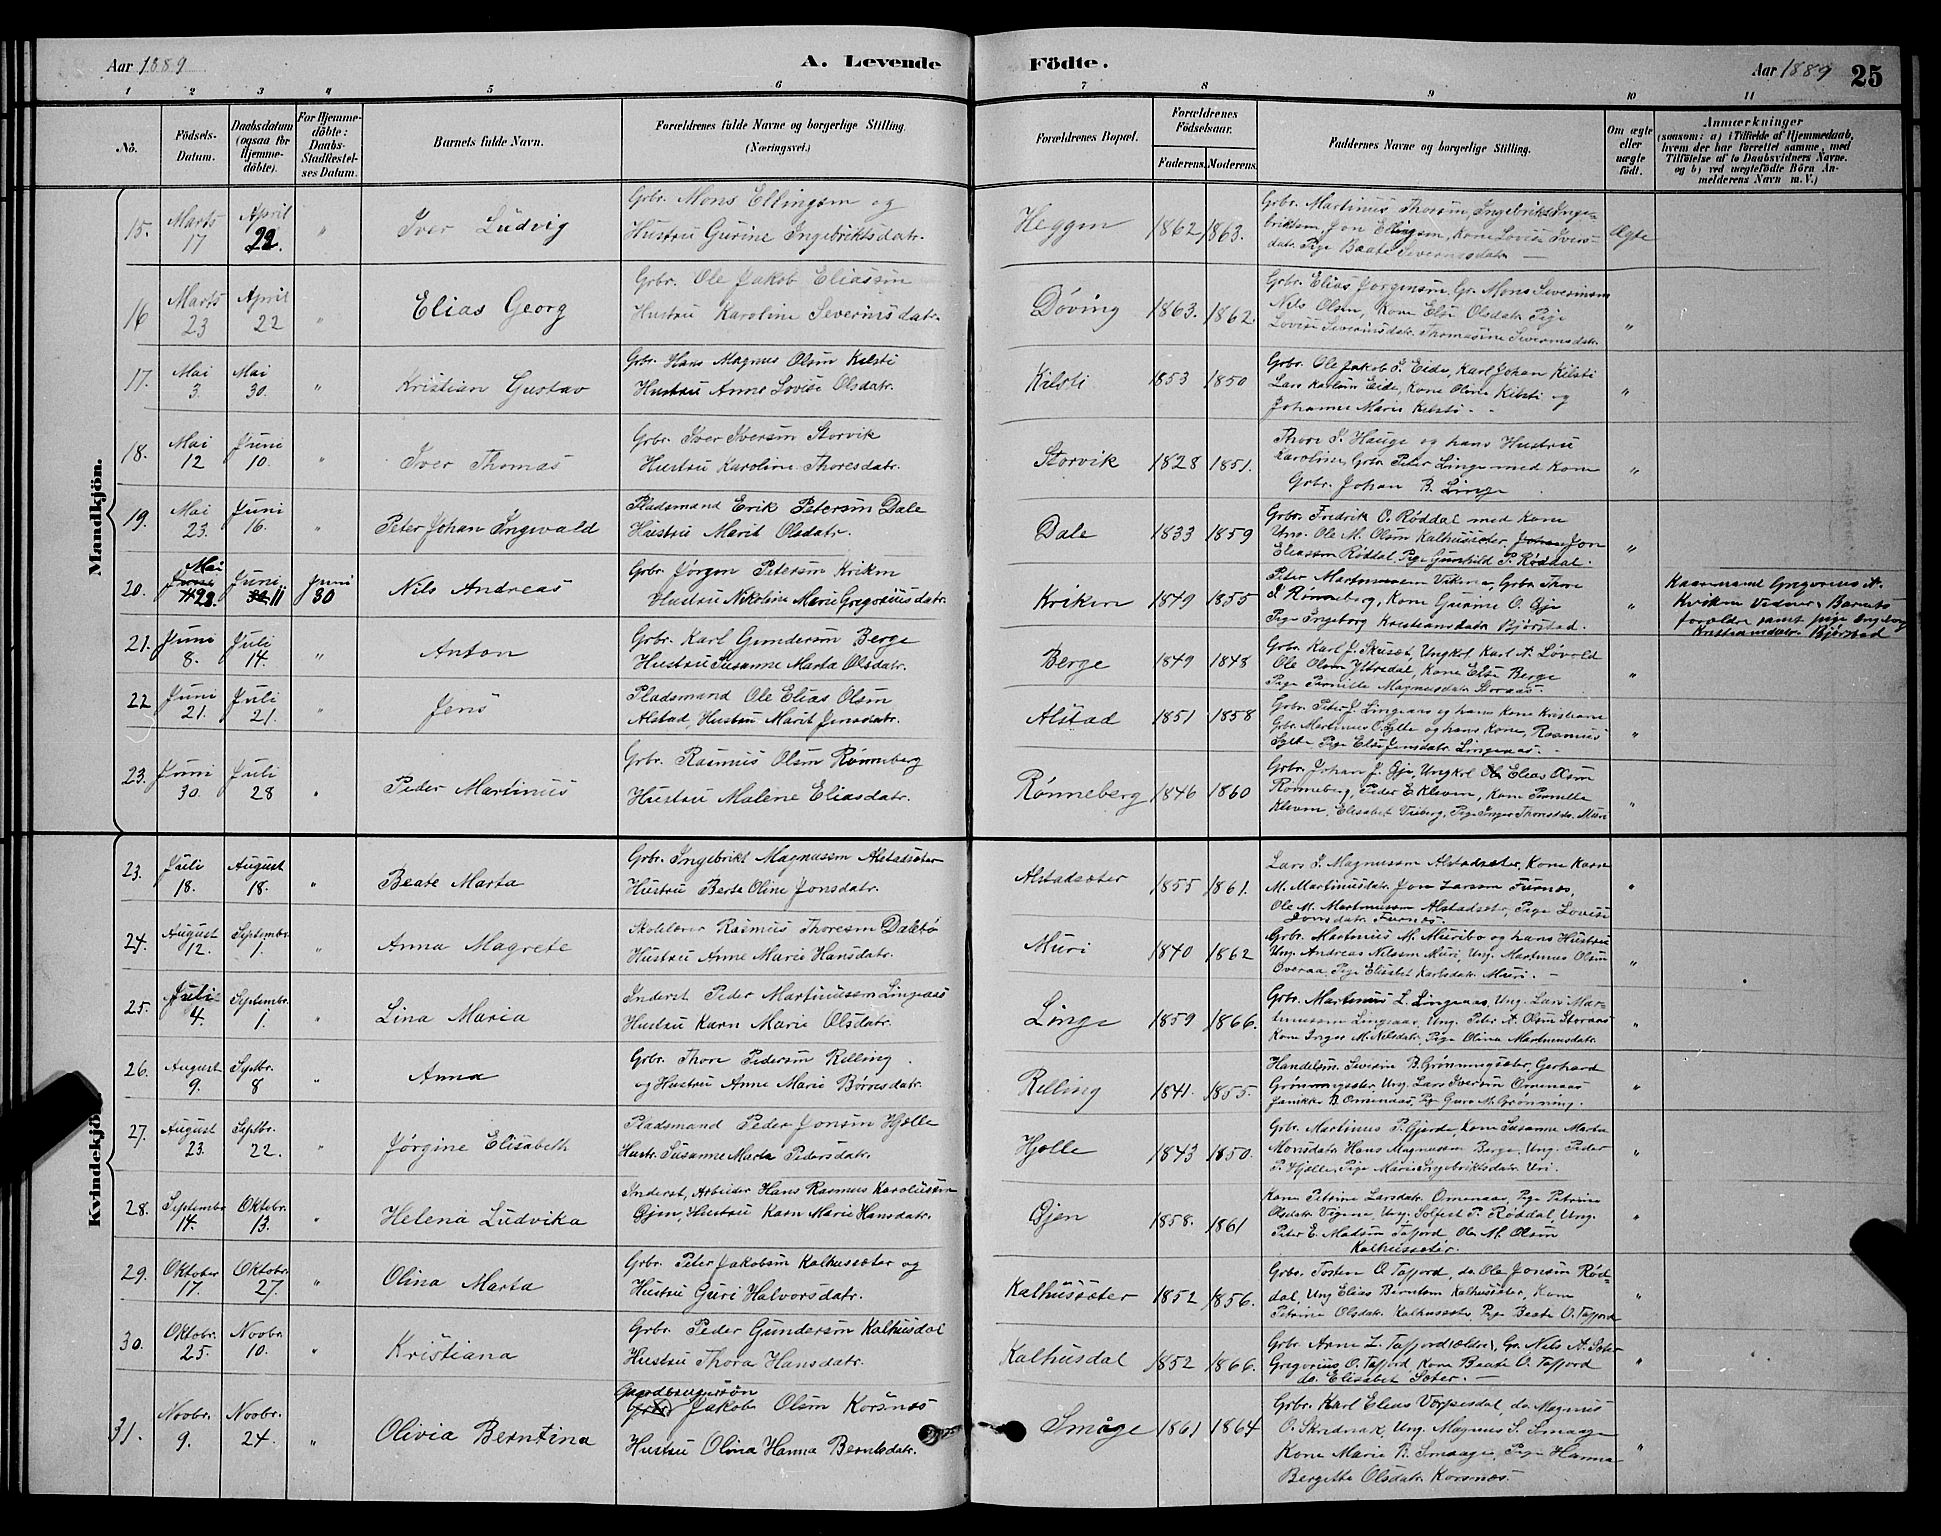 Aar 1889
A. Levende Födte.
Aar 1889 25
1 2 3 4 5 6 7 8 9 10 11
No.
Födsels-Datum.
Daabsdatum (ogsaa for Hjemmedöbte).
For Hjemmedöbte: Daabs-Stadfæstelses Datum.
Barnets fulde Navn.
Forældrenes fulde Navne og borgerlige Stilling. (Næringsvei.)
Forældrenes Bopæl.
Forældrenes Födselsaar.
Faderens. Moderens.
Faddernes Navne og borgerlige Stilling.
Om ægte eller uægte födt.
Anmærkninger
(saasom: a) i Tilfælde af Hjemmedaab,
hvem der har forrettet samme, med
Tilföielse af to Daabsvidners Navne.
og b) ved uægtefödte Börn An-
melderens Navn m. V.)
Mandkjön.
15. Marts 17 April 22. " Iver Ludvig
Grbr. Mons Ellingsen og
Hustru Gurine Ingebriktsdatr.
Heggen 1862 1863.
Grbr. Martinus Thorsen, Ingebrikt Inge-
briktsen, Jon Ellingsen, Kone Lovise Ivers-
datr. Pige Beate Severinsdatr. —
Ægte
16 Marts 23 April 22 " Elias Georg
Grbr. Ole Jakob Eliassen
Hustru Karoline Severinsdatr.
Döving 1863. 1862.
Grbr. Elias Jörgensen, Gr. Mons Severinsen
Nils Olsen, Kone Else Olsdatr. Pige
Lovise Severinsdatr. Thomasine Severinsdatr.
"
17. Mai 3. Mai 30. " Kristian Gustav
Grbr. Hans Magnus Olsen Kilsti
Hustru Anne Lovise Olsdatr.
Kilsti 1853 1850
Grbr. Ole Jakob I. Eide, Karl Johan Kilsti
Lars Karlsen Eide, Kone Oline Kilsti og
Johanne Marie Kilsti.
"
18. Mai 12 Juni 10. " Iver Thomas
Grbr. Iver Iversen Storvik
Hustru Karoline Thoresdatr.
Storvik 1828 1851.
Thore I. Hauge og hans Hustru
Karoline, Grbr. Peter Linge med Kone
Grbr. Johan B. Linge
"
19. Mai 23. Juni 16. " Peter Johan Ingvald
Pladsmand Erik Petersen Dale
Hustru Marit Olsdatr.
Dale 1833 1859
Grbr. Fredrik O. Röddal med Kone
Um. Ole M. Olsen Kalhussæter, Jon
Eliassen Röddal. Pige Gunhild P. Röddal.
"
20. Mai 28. Juni 11 Juni 30 Nils Andreas
Grbr. Jörgen Petersen Kriken
Hustru Nikoline Marie Gregoriusdatr.
Kriken 1849 1855
Peter Martinussen Viken, Grbr. Thore
I. Rönneberg, Kone Gurine O. Öje
Pige Ingeborg Kristiansdatr. Björstad.
"
Kaarmand Gregorius A.
Kriken Vidner: Barnets
forældre samt pige Ingeborg
Kristiansdatr. Björstad
21. Juni 8. Juli 14. " Anton
Grbr. Karl Gundersen Berge
Hustru Susanne Marta Olsdatr.
Berge 1849 1848
Grbr. Karl J. Skuset, Ungkol Karl A. Lövold
Ole Olsen Yttredal, Kone Else Berge
Pige Pernille Magnusdatr. Storaas.
"
22 Juni 21. Juli 21. " Jens
Pladsmand Ole Elias Olsen
Alstad, Hustru Marit Jensdatr.
Alstad 1851 1858
Grbr. Peter J. Lingeaas og hans Kone Kristiane
Grbr. Martinus O. Sylte og hans Kone, Rasmus
Sylte Pige Else Jensdatr. Lingeaas.
"
23. Juni 30. Juli 28 " Peder Martinus
Grbr. Rasmus Olsen Rönneberg
Hustru Malene Eliasdatr.
Rönneberg 1846 1860
Grbr. Johan J. Öje, Ungkol Elias Olsen
Rönneberg, Peder E. Kleven, Kone Pernille
Kleven, Elisabet Viberg, Pige Inger Thoresdtr. Muri
"
Kvindekjön.
23. Juli 18. August 18. " Beate Marta
Grbr. Ingebrikt Magnussen Alstadsæter
Hustru Berte Oline Jonsdatr.
Alstadsæter 1855 1861.
Lars I. Magnussen Alstadsæter, Kone Karn
M. Martinusdatr. Jon Larsen Furnæs,
Ole M. Martinussen Alstadsæter, Pige Lovise
Jonsdatr. Furnæs.
"
24. August 12. Septembr. 1. " Anna Magrete
Skolelærer Rasmus Thoresen Dalebö
Hustru Anne Marie Hansdatr.
Muri 1840 1862
Grbr. Martinus M. Muribö og hans Hustru
Ung. Andreas Nilssen Muri, Ung. Martinus Olsen
Overaa, Pige Elisabet Karlsdatr. Muri. —
"
25. Juli 4. Septembr. 1. " Lina Maria
Inderst Peder Martinussen Lingeaas
Hustru Karn Marie Olsdatr.
Linge 1859 1866.
Grbr. Martinus L. Lingeaas, Ung. Lars Mar-
tinussen Lingeaas, Ung. Peter A. Olsen Storaas
Kone Inger M. Nilsdatr. Pige Olina Martinusdatr.
"
26. August 9. Septbr. 8 " Anna
Grbr. Thore Pedersen Relling
og Hustru Anne Marie Börresdatr.
Relling 1841. 1855.
Handelsm. Severin B. Grönningsæter, Gerhard
Grönningsæter, Ung. Lars Iversen Omenaas
Janikke B. Omenaas, Pige Gure M. Grönning.
"
27. August 23. Septbr. 22. " Jörgine Elisabeth
Pladsmand Peder Jonsen Hjelle
Hustr. Susanne Marta Pedersdatr.
Hjelle 1843 1850.
Grbr. Martinus P. Gjerde, Kone Susanne Marta
Monsdatr. Hans Magnussen Berge, Ung. Peder
P. Hjelle, Pige Marie Ingebriktsdatr. Uri.
"
28. September 14. Oktobr. 13. " Helena Ludvika
Inderst, Arbeider Hans Rasmus Karolussen
Öjen, Hustru Karn Marie Hansdatr.
Öjen 1858. 1861
Kone Petrine Larsdatr. Omenaas, Pige Petrine
Olsdatr. Vigene, Ung. Solfest P. Röddal, Ung.
Peter E. Madsen Tafjord, Ole M. Olsen
Kalhussæter.
"
29. Oktober 17. Oktobr. 27. " Olina Marta
Grbr. Peter Jakobsen Kalhussæter og
Hustru Guri Halvorsdatr.
Kalhussæter 1852 1856.
Grbr. Tosten O. Tafjord, do. Ole Jonsen Röd-
dal, Ung Elias Berntsen Kalhussæter, Kone
Petrine Olsdatr. Kalhussæter, Pige Beate O. Tafjord
"
30. Oktobr. 25. Novbr. 10. " Kristiana
Grbr. Peder Gundersen Kalhusdal
Hustru Thora Hansdatr.
Kalhusdal 1852 1866.
Grbr. Arne L. Tafjord (ældre), Gr. Nils A. Sæter
Gregorius O. Tafjord, Kone Beate O. Tafjord
do. Elisabet Sæter. —
"
31. Novbr. 9. Novbr. 24. " Olivia Berntina
Gaardbrugersön
Jakob Olsen Korsnæs
Hustru Olina Hanna Berntsdatr.
Smöge 1861 1864
Grbr. Karl Elias Vörpesdal, do. Magnus
O. Skrednak, Ung. Magnus S. Smaage
Kone Marie R. Smaage, Pige Hanna
Bergitte Olsdatr. Korsnæs.
"